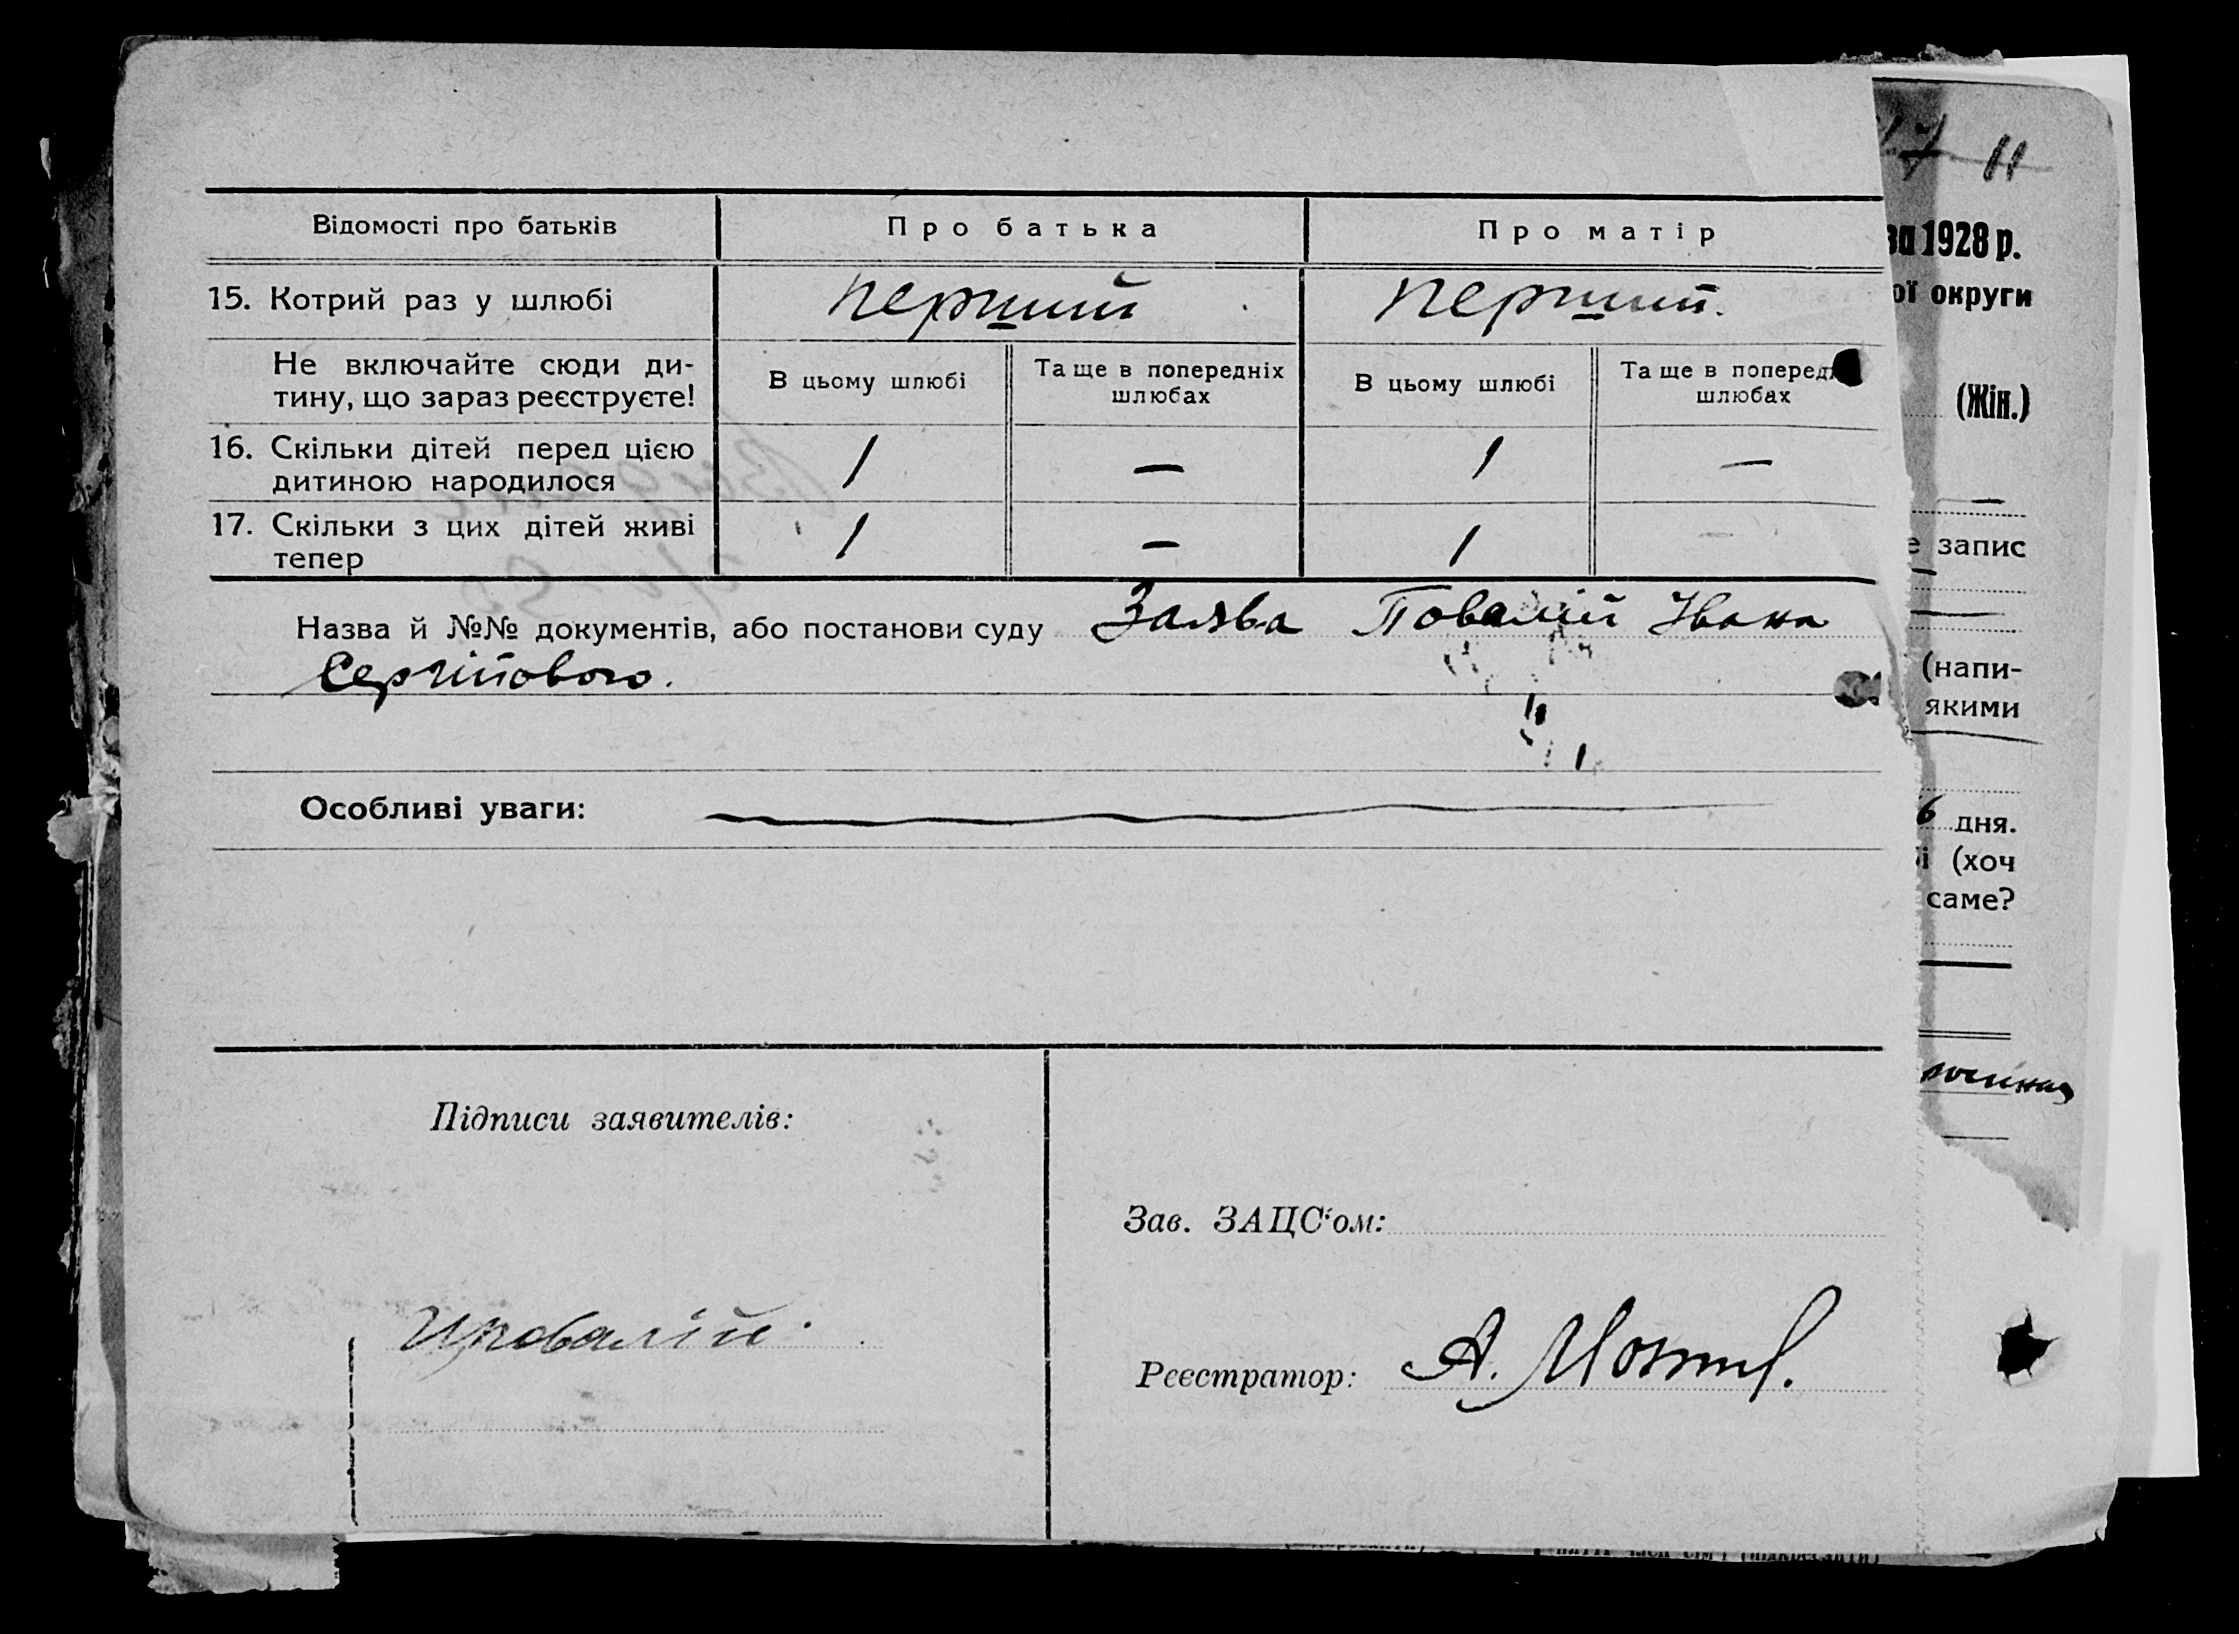 Відомості про батьків Про батька Про матір
15. Котрий раз у шлюбі перший перший.
Не включайте сюди ди-
тину, що зараз реєструєте!
В цьому шлюбі Та ще в попередніх
шлюбах
В цьому шлюбі Та ще в поперед
шлюбах
16. Скільки дітей перед цією
дитиною народилося 1 — 1 —
17. Скільки з цих дітей живі
тепер 1 — 1 —
Назва й №№ документів, або постанови суду Заява Повалій Івана
Сергійового.
Особливі уваги:
Підписи заявителів:
Зав. ЗАЦС'ом:
Реєстратор: А.
7 11
за 1928 р.
ої округи
(Жін.)
е запис
(напи-
якими
6 дня.
і (хоч
саме?